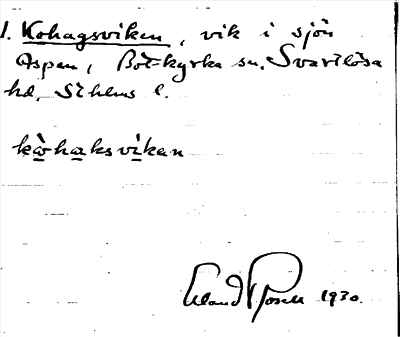 1. Kohagsviken, vik i sjön
Aspen, Botkyrka sn. Svartlösa
hd, Sthlms l.
kòhaksvikan
Erland Rosell 1930.